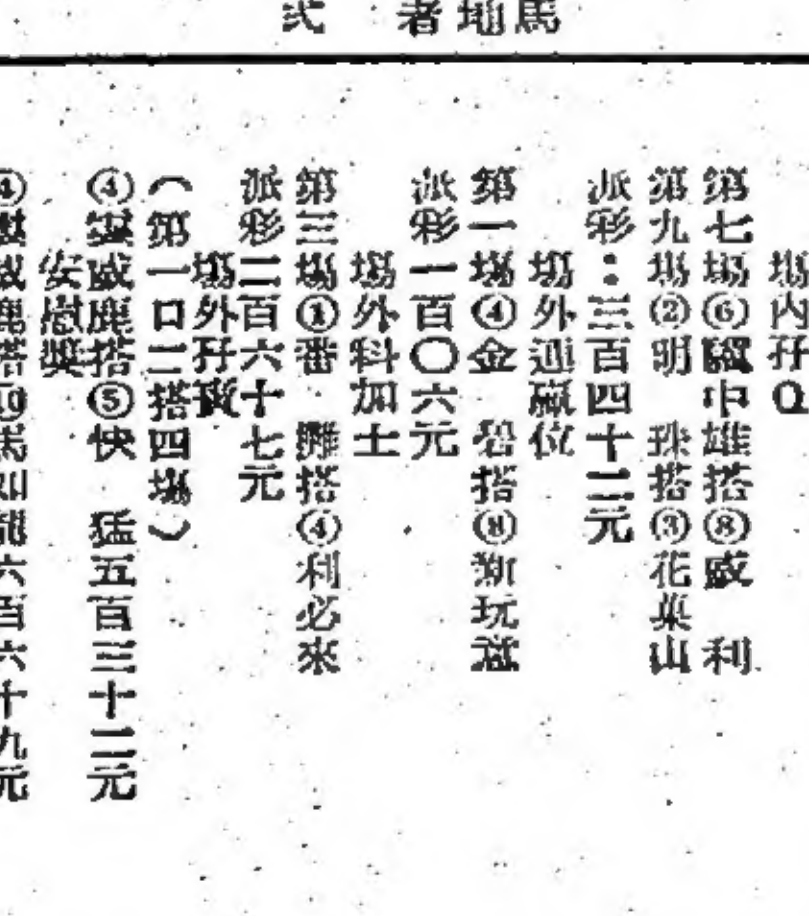 馬地者 弍
場內孖Q
第七場⑥驑中雄搭⑧威 利
第九場②明 珠搭③花菓山
派彩：三百四十二元
場外連贏位
第一場④金 碧搭⑧新玩意
派彩一百〇六元
場外科加士
第三場①番 攤搭④利必來
派彩二百六十七元
場外孖寶
（第一口二搭四場）
④ 威鹿搭⑤快 猛五百三十二元
安慰獎
④ 威鹿搭⑩馬如龍六百六十九元